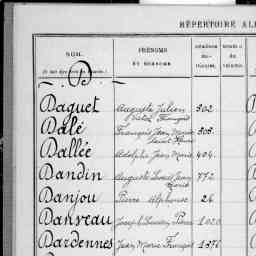 RÉPERTOIRE AL
NOM.
PRÉNOMS
ET SURNOMS
NUMÉROS
D
Daguet Auguste Julien 302
Victor François
Dalé François Jean Marie 303
Dallée Adolphe Jean Marie 404
Dandin Auguste Louis Jean 772
Marie
Danjou Pierre Alphonse 26
Danveau Joseph Pierre 1020
Dardennes Jean Marie François 1376